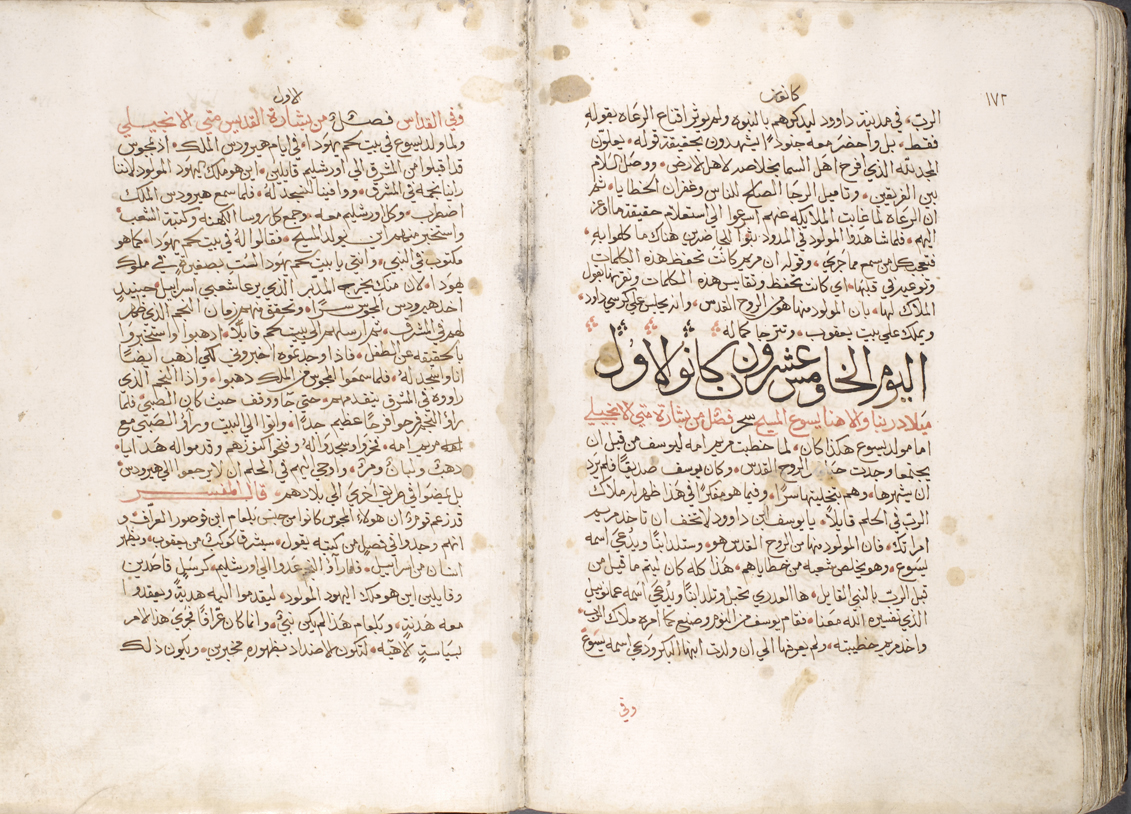 ١٧٢
كانون
الرب، في مدينة داوود ليذكرهم بالنبوه ولم يوثر اقناع الرعاه بقوله
فقط. بل واحضر معه جنوداً ليشهدون بحقيقة قوله. يعلون
المجد لله الذي افرح اهل السما بخلاصه لاهل الارض. ووصل السلام
بين الفريقين. وتاميل الرجا الصالح للناس وغفران الخطايا. ثم
ان الرعاه لما غابت الملايكه عنهم اسرعوا الى استعلام حقيقة ما وعز
اليهم. فلما شاهدوا المولود في المدود بثوا للحاضرين هناك ما كلموا به.
فتعجب كل من سمع مما جرى. وقوله ان مريم كانت تحفظ هذه الكلمات
وتوعيه في قلبها. اي كانت تحفظ وتقايس هذه الكلمات وتقرنها بقول
الملاك لها. بان المولود منها هو من الروح القدس. وانه يجلس على كرسي داود.
ويملك على بيت يعقوب. وتترجا كماله
اليوم الخامس وعشرون من كانون الاول
ميلاد ربنا والاهنا يسوع المسيح سحر فصل من بشارة متي الانجيلي
اما مولد يسوع هكذا كان. لما خطبت مريم امه ليوسف من قبل ان
يجتمعا وجدت حبلى من الروح القدس. وكان يوسف صديقاً فلم يرد
ان يشهرها. وهم بتخليتها سراً. وفيما هو مفكراً في هذا ظهر له ملاك
الرب في الحلم قايلاً. يا يوسف ابن داوود لا تخف ان تاخد مريم
امراتك. فان المولود منها من الروح القدس هو. وستلد ابناً ويدعى اسمه
يسوع. وهو يخلص شعبه من خطاياهم. هذا كله كان ليتم ما قيل من
قبل الرب بالنبي القايل. ها العدرى تحبل وتلد ابناً ويدعى اسمه عمانويل
الذي تفسيره الله معنا. فقام يوسف من النوم وصنع كما امره ملاك الرب.
واخد مريم خطيبته. ولم يعرفها الى ان ولدت ابنها البكر ودعى اسمه يسوع
وفي
الاول
وفي القداس فصل من بشارة القديس متي الانجيلي
ولما ولد يسوع في بيت لحم يهودا. في ايام هيرودس الملك. اذ مجوس
قد اقبلوا من المشرق الى اورشليم قايلين. اين هو ملك يهود المولود لاننا
راينا نجمه في المشرق. ووافينا لنسجد له. فلما سمع هيرودس الملك
اضطرب. وكل اورشليم معه. وجمع كل روسا الكهنه وكتبة الشعب.
واستخبر منهم اين يولد المسيح. فقالوا له في بيت لحم يهودا. كما هو
مكتوب في النبي. وانتي يا بيت لحم يهودا لستِ بصغيرةٍ في ملوك
يهودا. لان منك يخرج المدبر الذي يرعا شعبي اسرائيل. حينيد
اخد هيرودس المجوس سراً. وتحقق منهم زمان النجم الذي ظهر
لهم في المشرق. ثم ارسلهم الى بيت لحم قايلاً. ادهبوا واستخبروا
بالحقيقه عن الطفل. فاذا وجدتموه اخبروني لكي ادهب ايضاً
انا واسجد له. فلما سمعوا المجوس من الملك دهبوا. واذا النجم الذي
راووه في المشرق يتقدمهم. حتى جا ووقف حيث كان الصبي. فلما
راوا النجم فرحوا فرحاً عظيم جداً. واتوا الى البيت وراو الصبي مع
مريم امه. فخروا وسجدوا له. وفتحوا كنوزهم وقدموا له هدايا.
دهب ولباناً ومراً. واوحي اليهم في الحلم ان لا يرجعوا الى هيرودس
بل يمضوا في طريق اخرى الى بلادهم. قال المفسر
قد زعم قوم ان هولاء المجوس كانوا من جنس بلعام ابن فوصور العراف. و
انهم وجدوا في فصل من كتبه يقول. سيشرق كوكب من يعقوب. ويظهر
انسان من اسراييل. فلما راوا النجم غدوا الى اورشليم. كرسلٍ قاصدين
وقايلين اين هو ملك اليهود المولود. ليقدموا اليه هديةً ويعقدوا
معه هدنة. وبلعام هذا لم يكن نبي. وانما كان عرافاً فجرى هذا الامر
بسياسةٍ لاهيه. لتكون الاضداد بظهوره مخبرين. ويكون ذلك